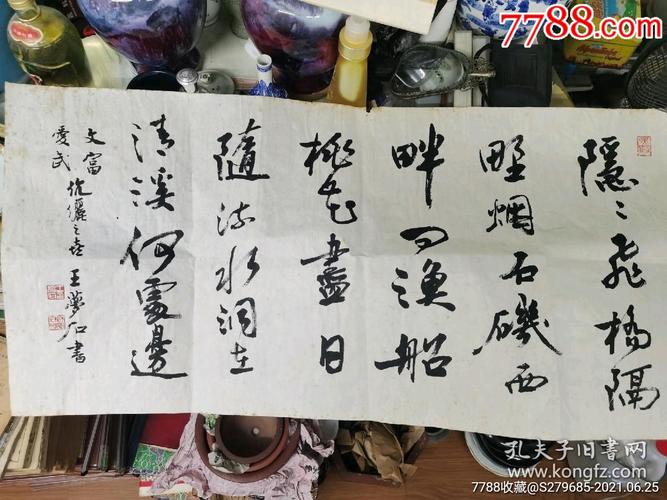 7788.com
隱〻飛橋隔
野烟石磯西
畔问漁船
桃花盡日
隨流水洞在
清溪何處邊
文富
愛武 伉儷之喜 王夢石書
孔夫子旧书网
www.kongfz.com
7788收藏@S279685-2021.06.25